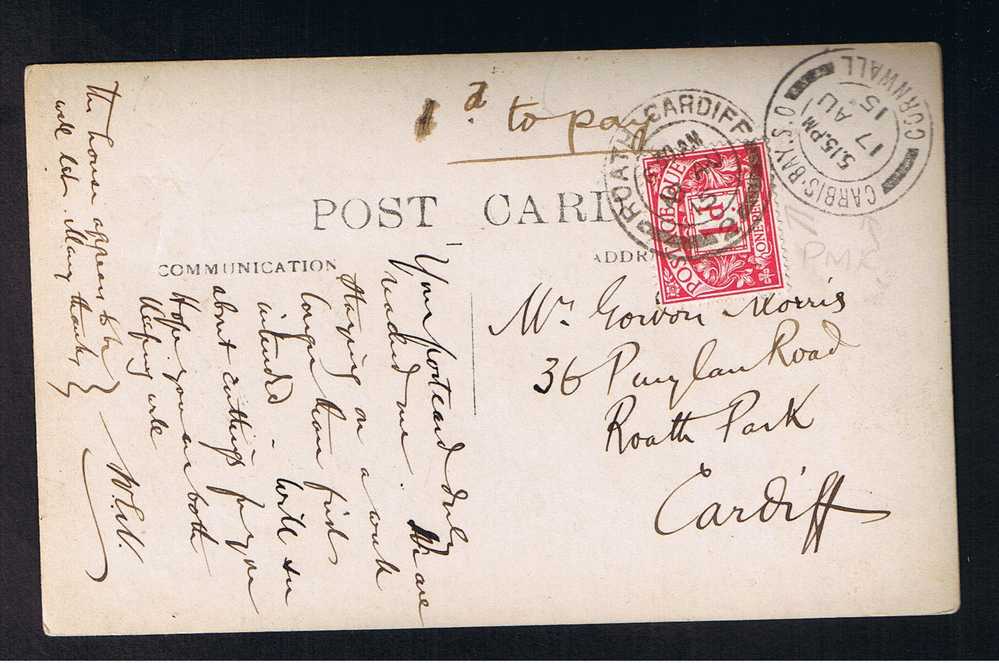 1d. to pay
ROATH · CARDIFF
CARBIS·BAY. S.O.
CORNWALL
5.15.PM
17 AU
15
POST CARD
POSTAGE DUE
1D
ONE PENNY
PMK
COMMUNICATION
ADDR
Mr. Gordon Morris
36 Penylan Road
Roath Park
Cardiff
Your postcard duly
reached me. We are
staying on a week
longer than first
intended - Will see
about cuttings for you
Hope you are both
keeping well
The house appears to be
well let. Many thanks